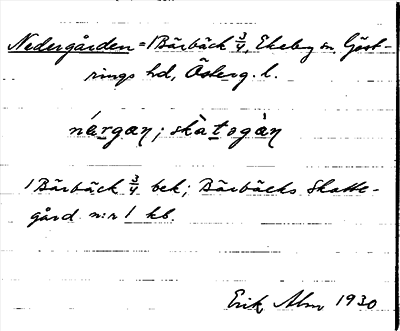 Nedergården = 1 Bärbäck 3/4, Ekeby sn, Göst-
rings hd, Österg. l.
nérgæn; skàtogàn
1 Bärbäck 3/4 bek; Bärbäcks Skatte-
gård n:r 1 kb.
Erik Alm 1930